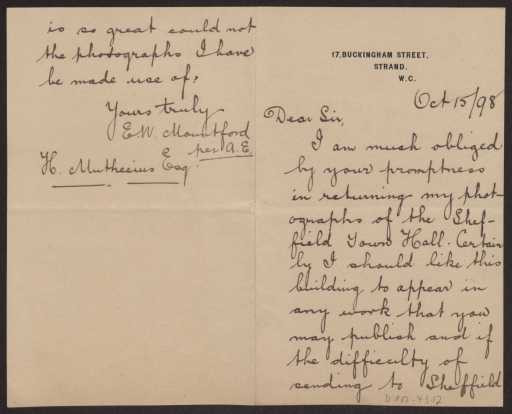 17, BUCKINGHAM STREET,
STRAND,
W.C.
Oct 15/98
Dear Sir,
I am much obliged
by your promptness
in returning my phot-
ographs of the Shef-
field Town Hall. Certain
ly I should like this
building to appear in
any work that you
may publish and if
the difficulty of
sending to Sheffield
is so great could not
the photographs I have
be made use of?
Yours truly
E.W. Mountford
per A.E.
H. Muthecius Esq